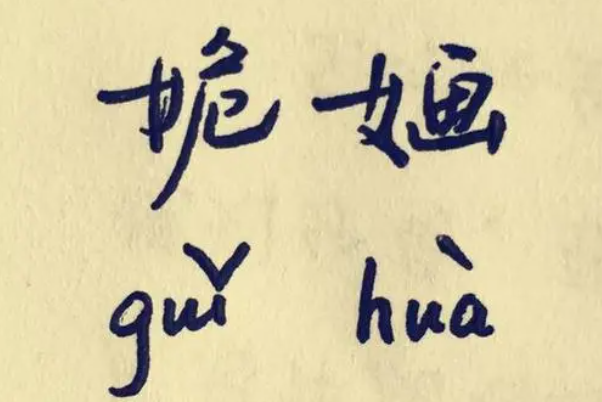 姽婳
guǐ huà